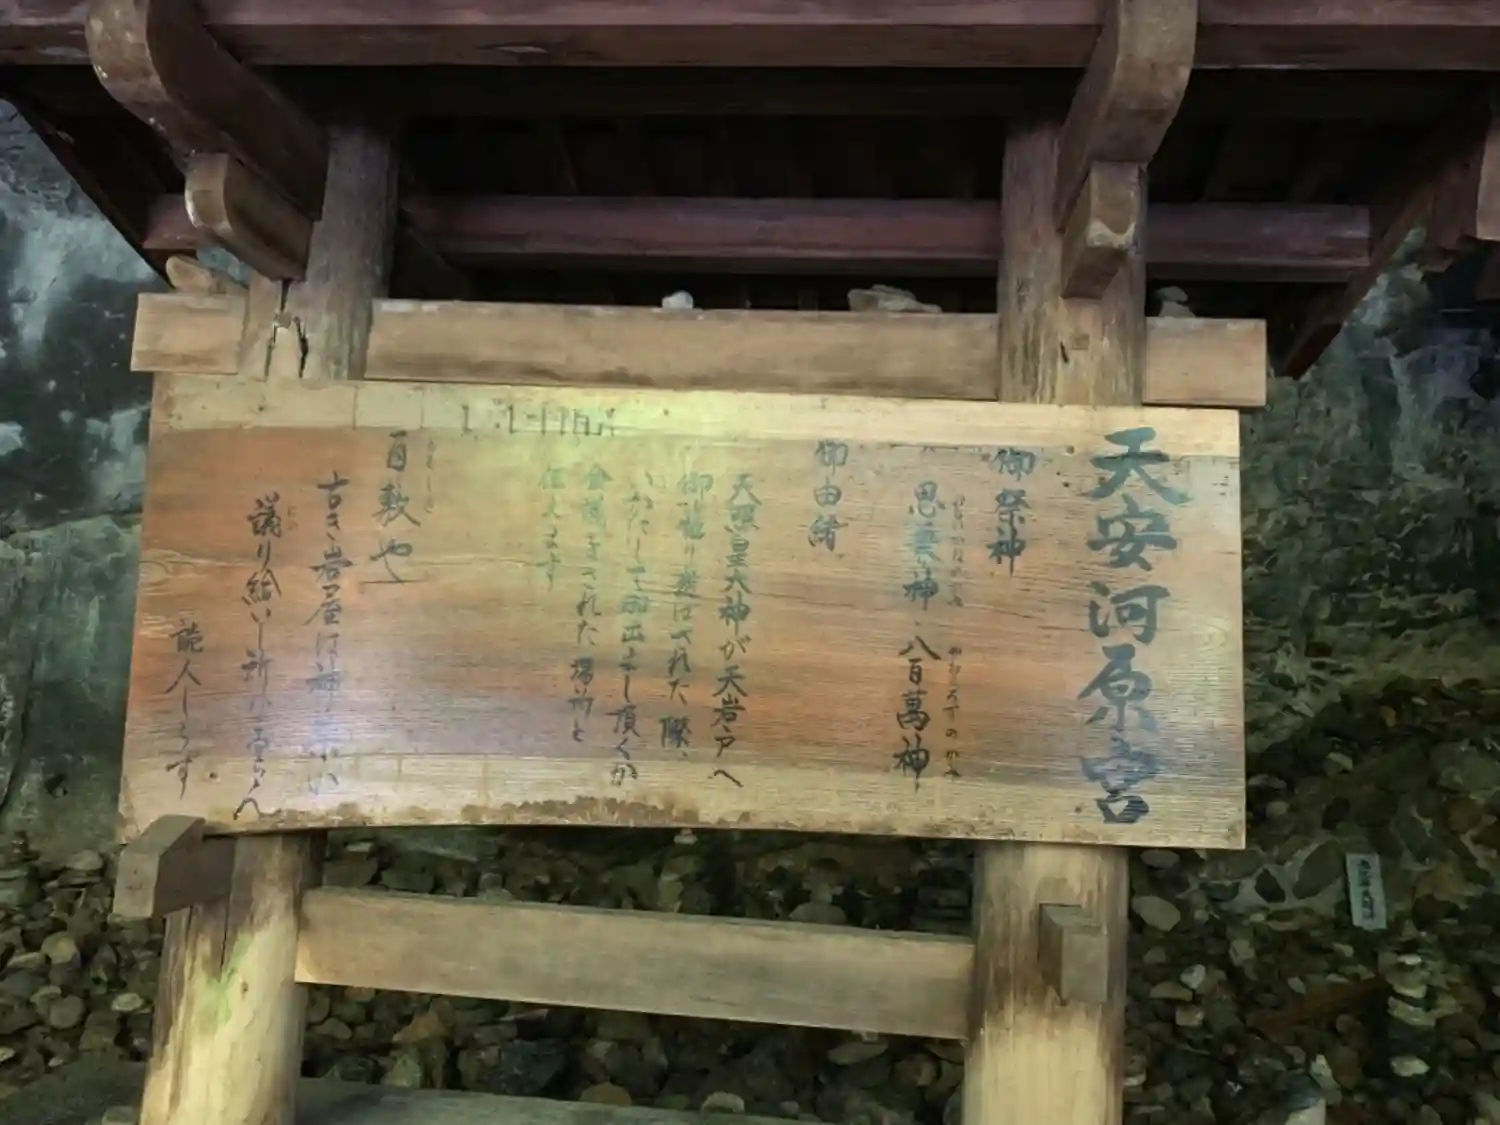 天安河原宮
御祭神
思兼神、八百萬神
やおよろずのかみ
御由緒
天照皇大神が天岩戸へ
御籠り遊ばされた際、
いかにして御出まし頂くか
会議をされた場所と
伝えます
百敷や
ももしき
古き岩屋は神
給いし所
人しらず